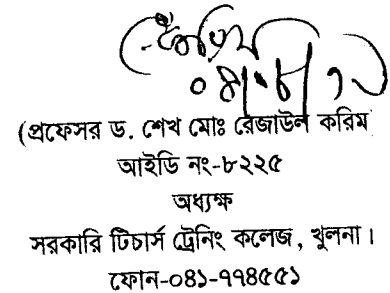 (প্রফেসর ড. শেখ মোঃ রেজাউল করিম
আইডি নং-৮২২৫
অধ্যক্ষ
সরকারি টিচার্স ট্রেনিং কলেজ, খুলনা।
ফোন-০৪১-৭৭৪৫৫১